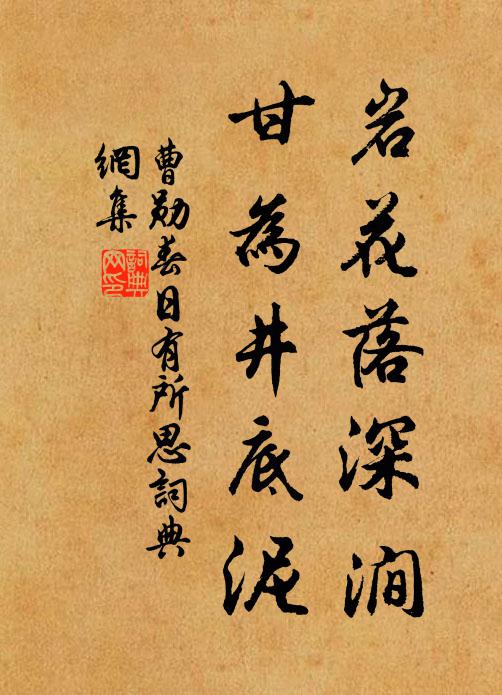 岩花落深澗
甘為井底泥
曹勛春日有所思詞典
網集
詞典網印